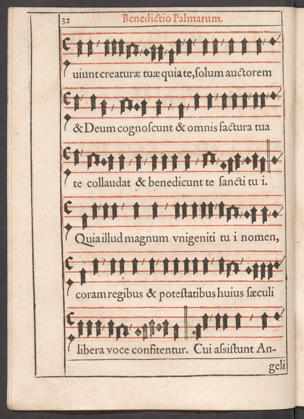 32
Benedictio Palmarum.
uiunt creaturæ tuæ quia te, solum auctorem
& Deum cognoscunt & omnis factura tua
te collaudat & benedicunt te sancti tu i.
Quia illud magnum vnigeniti tu i nomen,
coram regibus & potestatibus huius sæculi
libera voce confitentur. Cui assistunt An-
geli